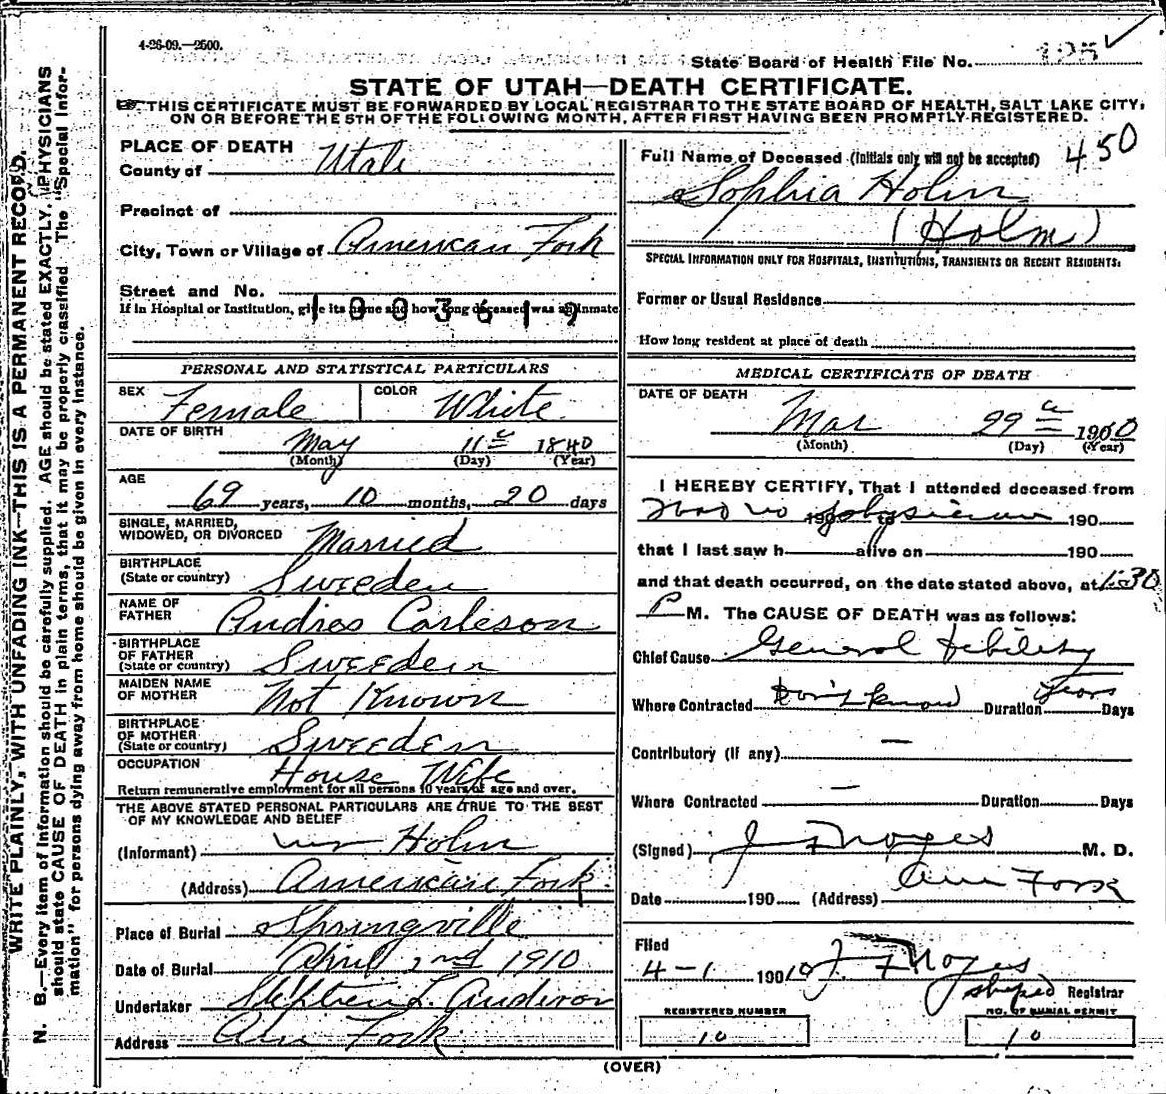 4-26-09.—2500.
State Board of Health File No. 125
STATE OF UTAH—DEATH CERTIFICATE.
THIS CERTIFICATE MUST BE FORWARDED BY LOCAL REGISTRAR TO THE STATE BOARD OF HEALTH, SALT LAKE CITY,
ON OR BEFORE THE 5TH OF THE FOLLOWING MONTH, AFTER FIRST HAVING BEEN PROMPTLY REGISTERED.
WRITE PLAINLY, WITH UNFADING INK—THIS IS A PERMANENT RECORD.
N. B.—Every item of information should be carefully supplied. AGE should be stated EXACTLY. PHYSICIANS
should state CAUSE OF DEATH in plain terms, that it may be properly classified. The "Special Infor-
mation" for persons dying away from home should be given in every instance.
PLACE OF DEATH
County of Utah
Precinct of
City, Town or Village of American Fork
Street and No.
If in Hospital or Institution, give its name and how long deceased was an inmate
1003619
PERSONAL AND STATISTICAL PARTICULARS
SEX Female COLOR White
DATE OF BIRTH May 11 1840
(Month) (Day) (Year)
AGE
69 years, 10 months, 20 days
SINGLE, MARRIED,
WIDOWED, OR DIVORCED Married
BIRTHPLACE
(State or country) Sweeden
NAME OF
FATHER Andros Carleson
BIRTHPLACE
OF FATHER
(State or country) Sweeden
MAIDEN NAME
OF MOTHER Not Known
BIRTHPLACE
OF MOTHER
(State or country) Sweeden
OCCUPATION House Wife
Return remunerative employment for all persons 10 years of age and over.
THE ABOVE STATED PERSONAL PARTICULARS ARE TRUE TO THE BEST
OF MY KNOWLEDGE AND BELIEF
(Informant) Holm
(Address) American Fork.
Place of Burial Springville
Date of Burial April 2nd 1910
Undertaker Stephen L. Anderson
Address Am Fork
Full Name of Deceased (Initials only will not be accepted) 450
Sophia Holm
(Holm)
SPECIAL INFORMATION ONLY FOR HOSPITALS, INSTITUTIONS, TRANSIENTS OR RECENT RESIDENTS:
Former or Usual Residence
How long resident at place of death
MEDICAL CERTIFICATE OF DEATH
DATE OF DEATH
Mar 29 1910
(Month) (Day) (Year)
I HEREBY CERTIFY, That I attended deceased from
Had no physician 190 to 190
that I last saw h alive on 190
and that death occurred, on the date stated above, at 1:30
P M. The CAUSE OF DEATH was as follows:
Chief Cause General debility
Where Contracted Don't know Duration Years Days
Contributory (if any) —
Where Contracted — Duration Days
(Signed) J F Noyes M. D.
Date 190 (Address) Am Fork
Filed
4-1 1910 J. F Noyes
Registrar
REGISTERED NUMBER
10
NO. OF BURIAL PERMIT
10
(OVER)